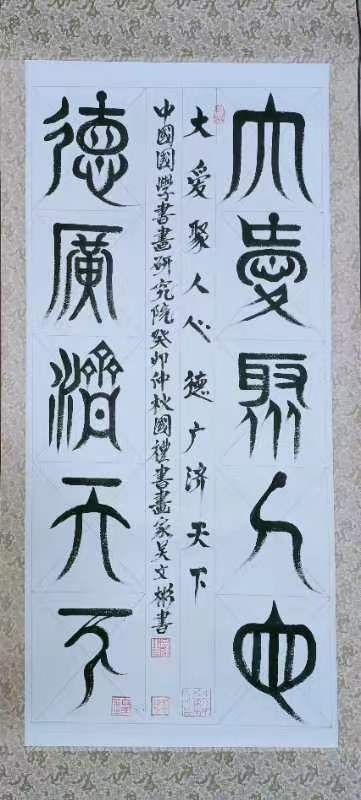 大愛聚人心
德廣濟天下
大爱聚人心德广济天下
中國國學書畫研究院癸卯仲秋國禮書畫家吴文彬書